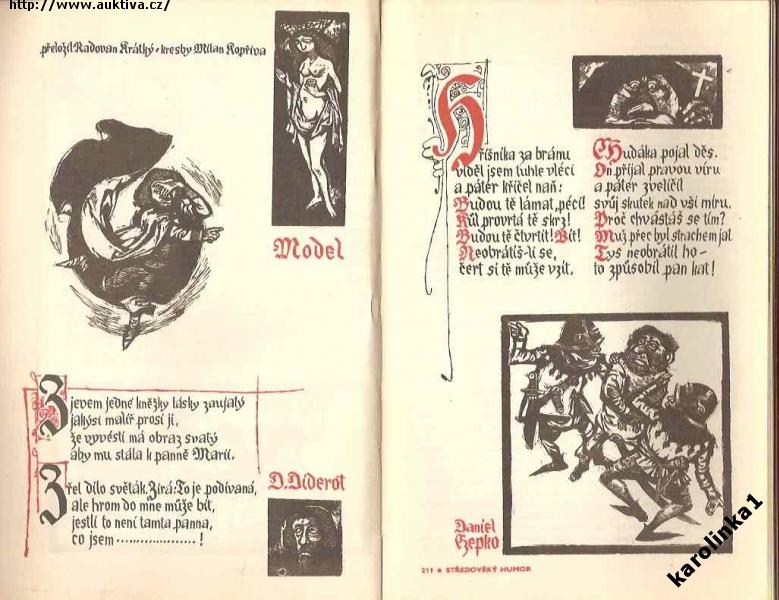 http://www.auktiva.cz/
přeložil Radovan Krátký · kresby Milan Kopřiva
Model
Zjevem jedné kněžky lásky zaujatý
jakýsi malíř prosí ji,
že vyvésti má obraz svatý
aby mu stála k panně Marii.
Zřel dílo světák. Zírá: To je podívaná,
ale hrom do mne může bít,
jestli to není tamta panna,
co jsem ....................!
D. Diderot
Hříšníka za bránu
viděl jsem tuhle vléci
a páter křičel naň:
Budou tě lámat, péci!
Kůl provrtá tě skrz!
Budou tě čtvrtit! Bít!
Neobrátíš-li se,
čert si tě může vzít.
Chudáka pojal děs.
On přijal pravou víru
a páter zveličil
svůj skutek nad vší míru.
Proč chvástáš se tím?
Muž přec byl strachem jat.
Tys neobrátil ho-
to způsobil pan kat!
Daniel
Czepko
211 ★ STŘEDOVĚKÝ HUMOR
karolinka1